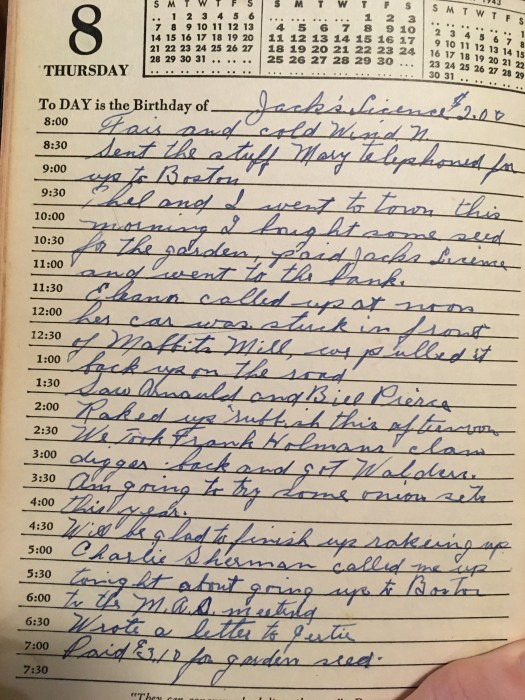 8
THURSDAY
S M T W T F S
1 2 3 4 5 6
7 8 9 10 11 12 13
14 15 16 17 18 19 20
21 22 23 24 25 26 27
28 29 30 31
M T W T F S
1 2 3
4 5 6 7 8 9 10
11 12 13 14 15 16 17
18 19 20 21 22 23 24
25 26 27 28 29 30
1943
S M T W T F S
2 3 4 5 6 7 8
9 10 11 12 13 14 15
16 17 18 19 20 21 22
23 24 25 26 27 28 29
30 31
To DAY is the Birthday of Jack's Licence $2.00
8:00 Fair and cold Wind N
8:30 Sent the stuff Mary telephoned for
9:00 up to Boston
9:30 Phel and I went to town this
10:00 morning I bought some seed
10:30 for the garden, paid Jacks Licence
11:00 and went to the bank.
11:30 Eleano called up at noon
12:00 her car was stuck in front
12:30 of Mabbits Mill, we pulled it
1:00 back up on the road
1:30 Saw Arnauld and Bill Pierce
2:00 Raked up rubbish this afternoon
2:30 We Took Frank Holmans clam
3:00 digger back and got Walders.
3:30 Am going to try some onion sets
4:00 this year.
4:30 Will be glad to finish up rakeing up
5:00 Charlie Sherman called me up
5:30 tonight about going up to Boston
6:00 to the M.A.A. meeting
6:30 Wrote a letter to Gertie
7:00 Paid $3.10 for garden seed.
7:30
"They can